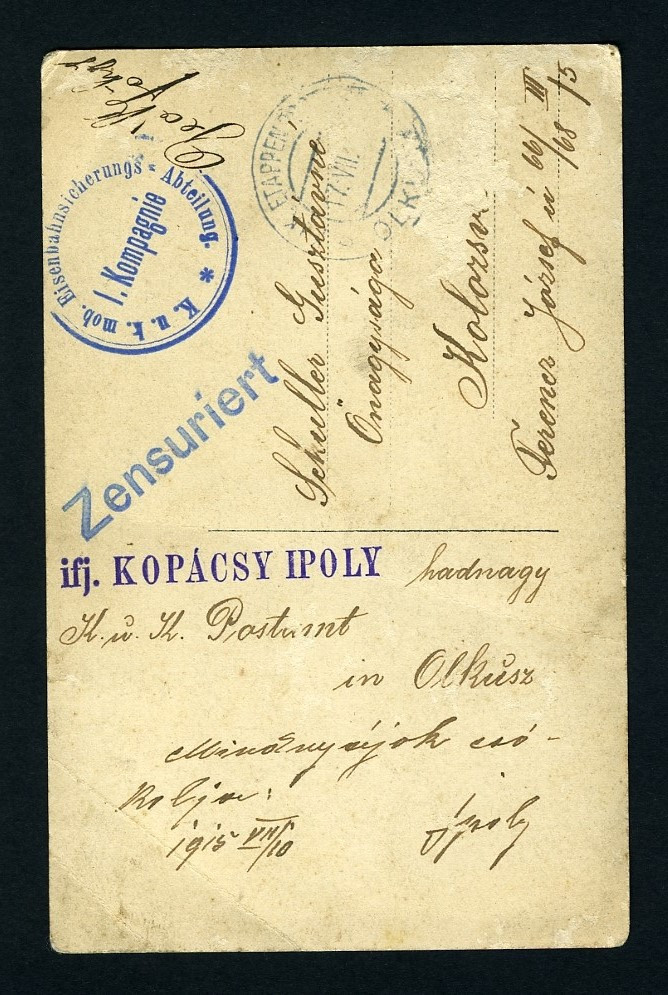 K. u. k. mob. Eisenbahnsicherungs - Abteilung. *
1. Kompagnie
ETAPPEN
17. VII.
OLKUSZ
Zensuriert
Schuller Gusztávné
Őnagysága
Kolozsv.
Ferencz József ú 66/68 III/15
ifj. KOPÁCSY IPOLY hadnagy
K. u. K. Postamt
in Olkusz
Mindnyájok csó-
kolja:
1915 VII/10 Ipoly